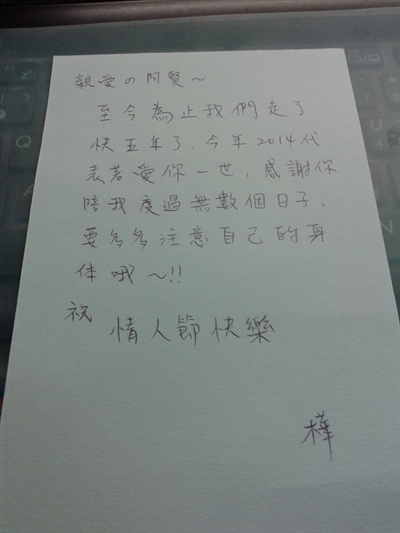 親愛の阿賢～
至今為止我們走了
快五年了，今年2014代
表著愛你一世，感謝你
陪我度過無數個日子，
要多多注意自己的身
体哦～!!
祝
情人節快樂
樺